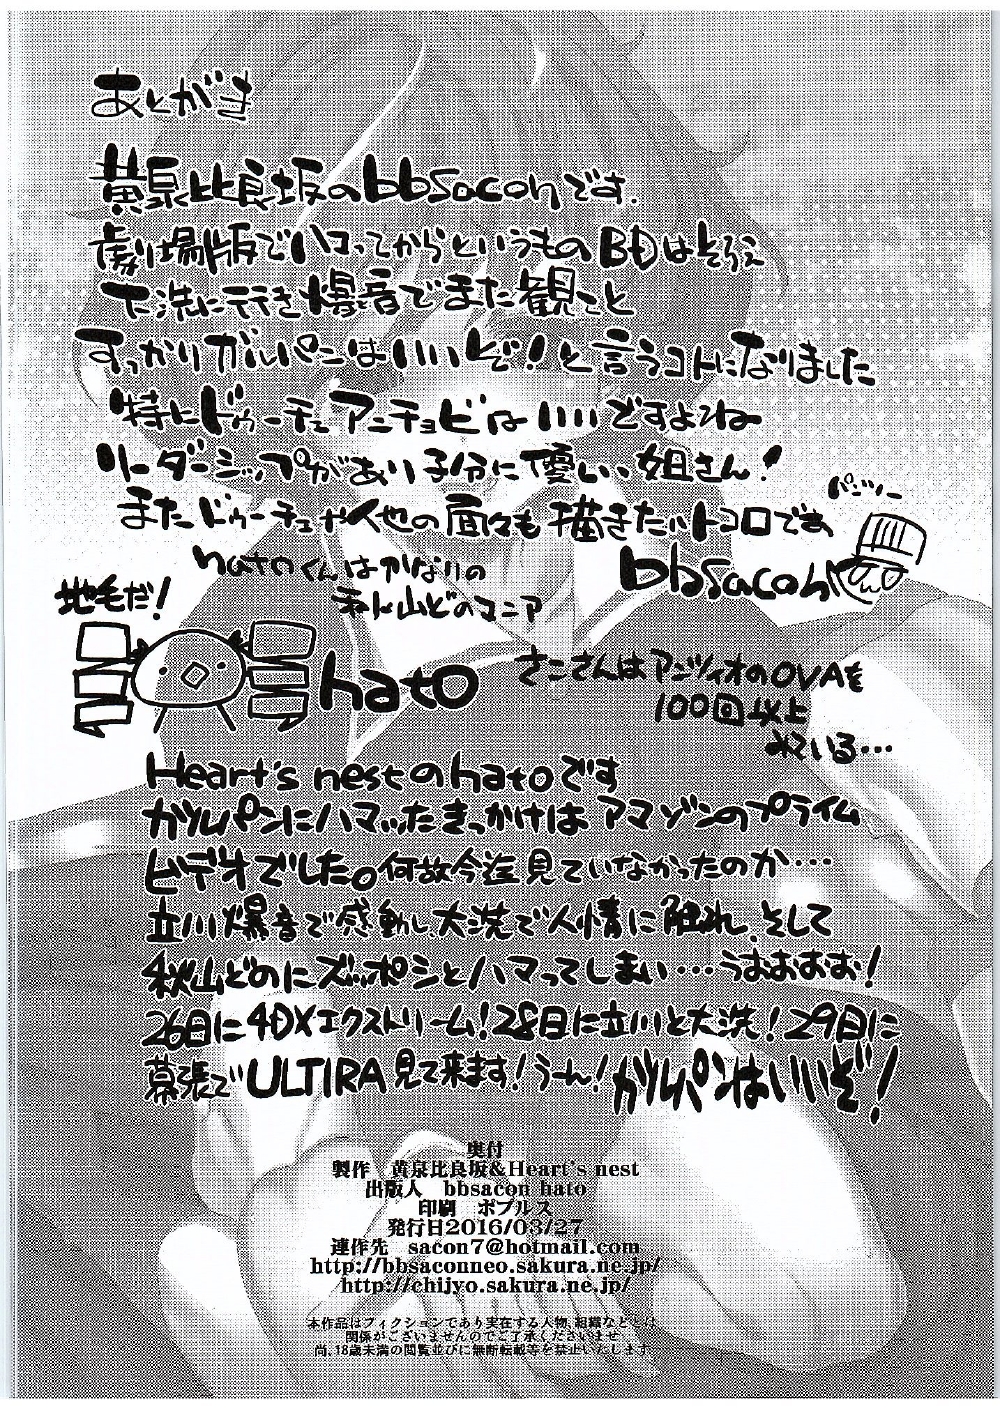 あとがき
黄泉比良坂のbbsaconです.
劇場版でハコってからというものBDはそろえ
大洗に行き爆音でまた観てと
すっかりガルパンはいいぞ！と言うコトになりました
特にドゥーチェアンチョビはいいですよね
リーダーシップがあり子分に優しい姐さん！
またドゥーチェや他の面々も描きたいトコロでる
パンツァー
bbsacon
hatoくんはかなりの
秋山どのマニア
地毛だ！
hato
さこさんはアンツィオのOVAを
100回以上
みている…
Heart's nestのhatoです
ガルパンにハマッたきっかけはアマゾンのプライム
ビデオでした。何故今迄見ていなかったのか…
立川爆音で感動し大洗で人情に触れ、そして
秋山どのにズッポシとハマってしまい…うおおおお！
26日に4DXエクストリーム！28日に立川と大洗！29日に
幕張でULTIRA見て来ます！うーん！ガルパンはいいぞ！
奥付
製作　黄泉比良坂&Heart's nest
出版人　bbsacon hato
印刷　ポプルス
発行日2016/03/27
連作先　sacon7@hotmail.com
http://bbsaconneo.sakura.ne.jp/
http://chijyo.sakura.ne.jp/
本作品はフィクションであり実在する人物、組織などとは
関係がございませんのでご了承くださいませ
尚、18歳未満の閲覧並びに無断転載等を禁止いたします